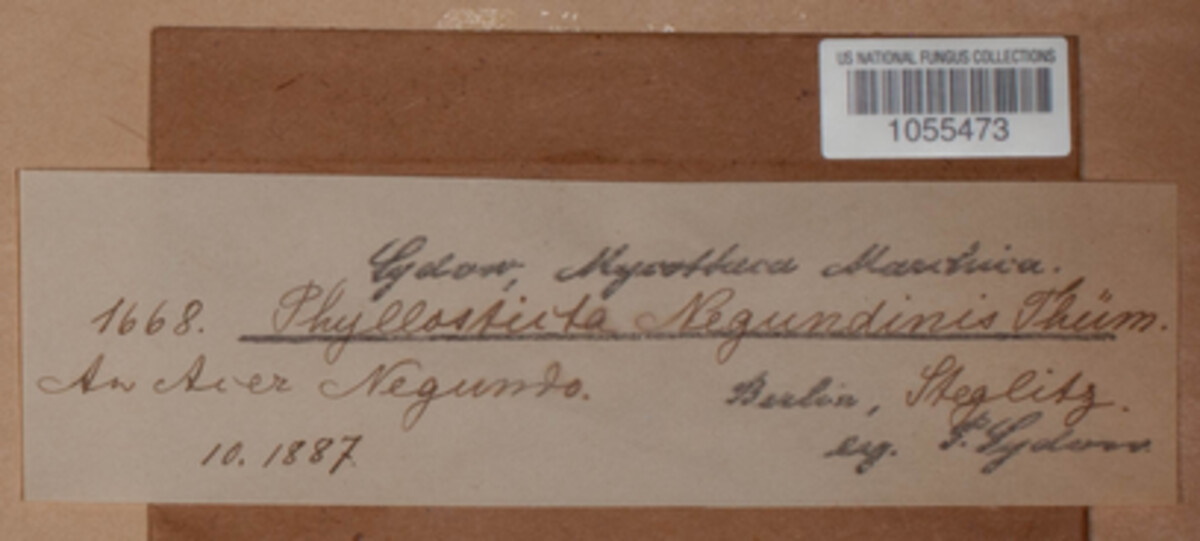 US NATIONAL FUNGUS COLLECTIONS
1055473
Sydow, Mycotheca Marchica.
1668. Phyllosticta Negundinis Thüm.
An Acer Negundo. Berlin, Steglitz.
10. 1887 leg. P. Sydow